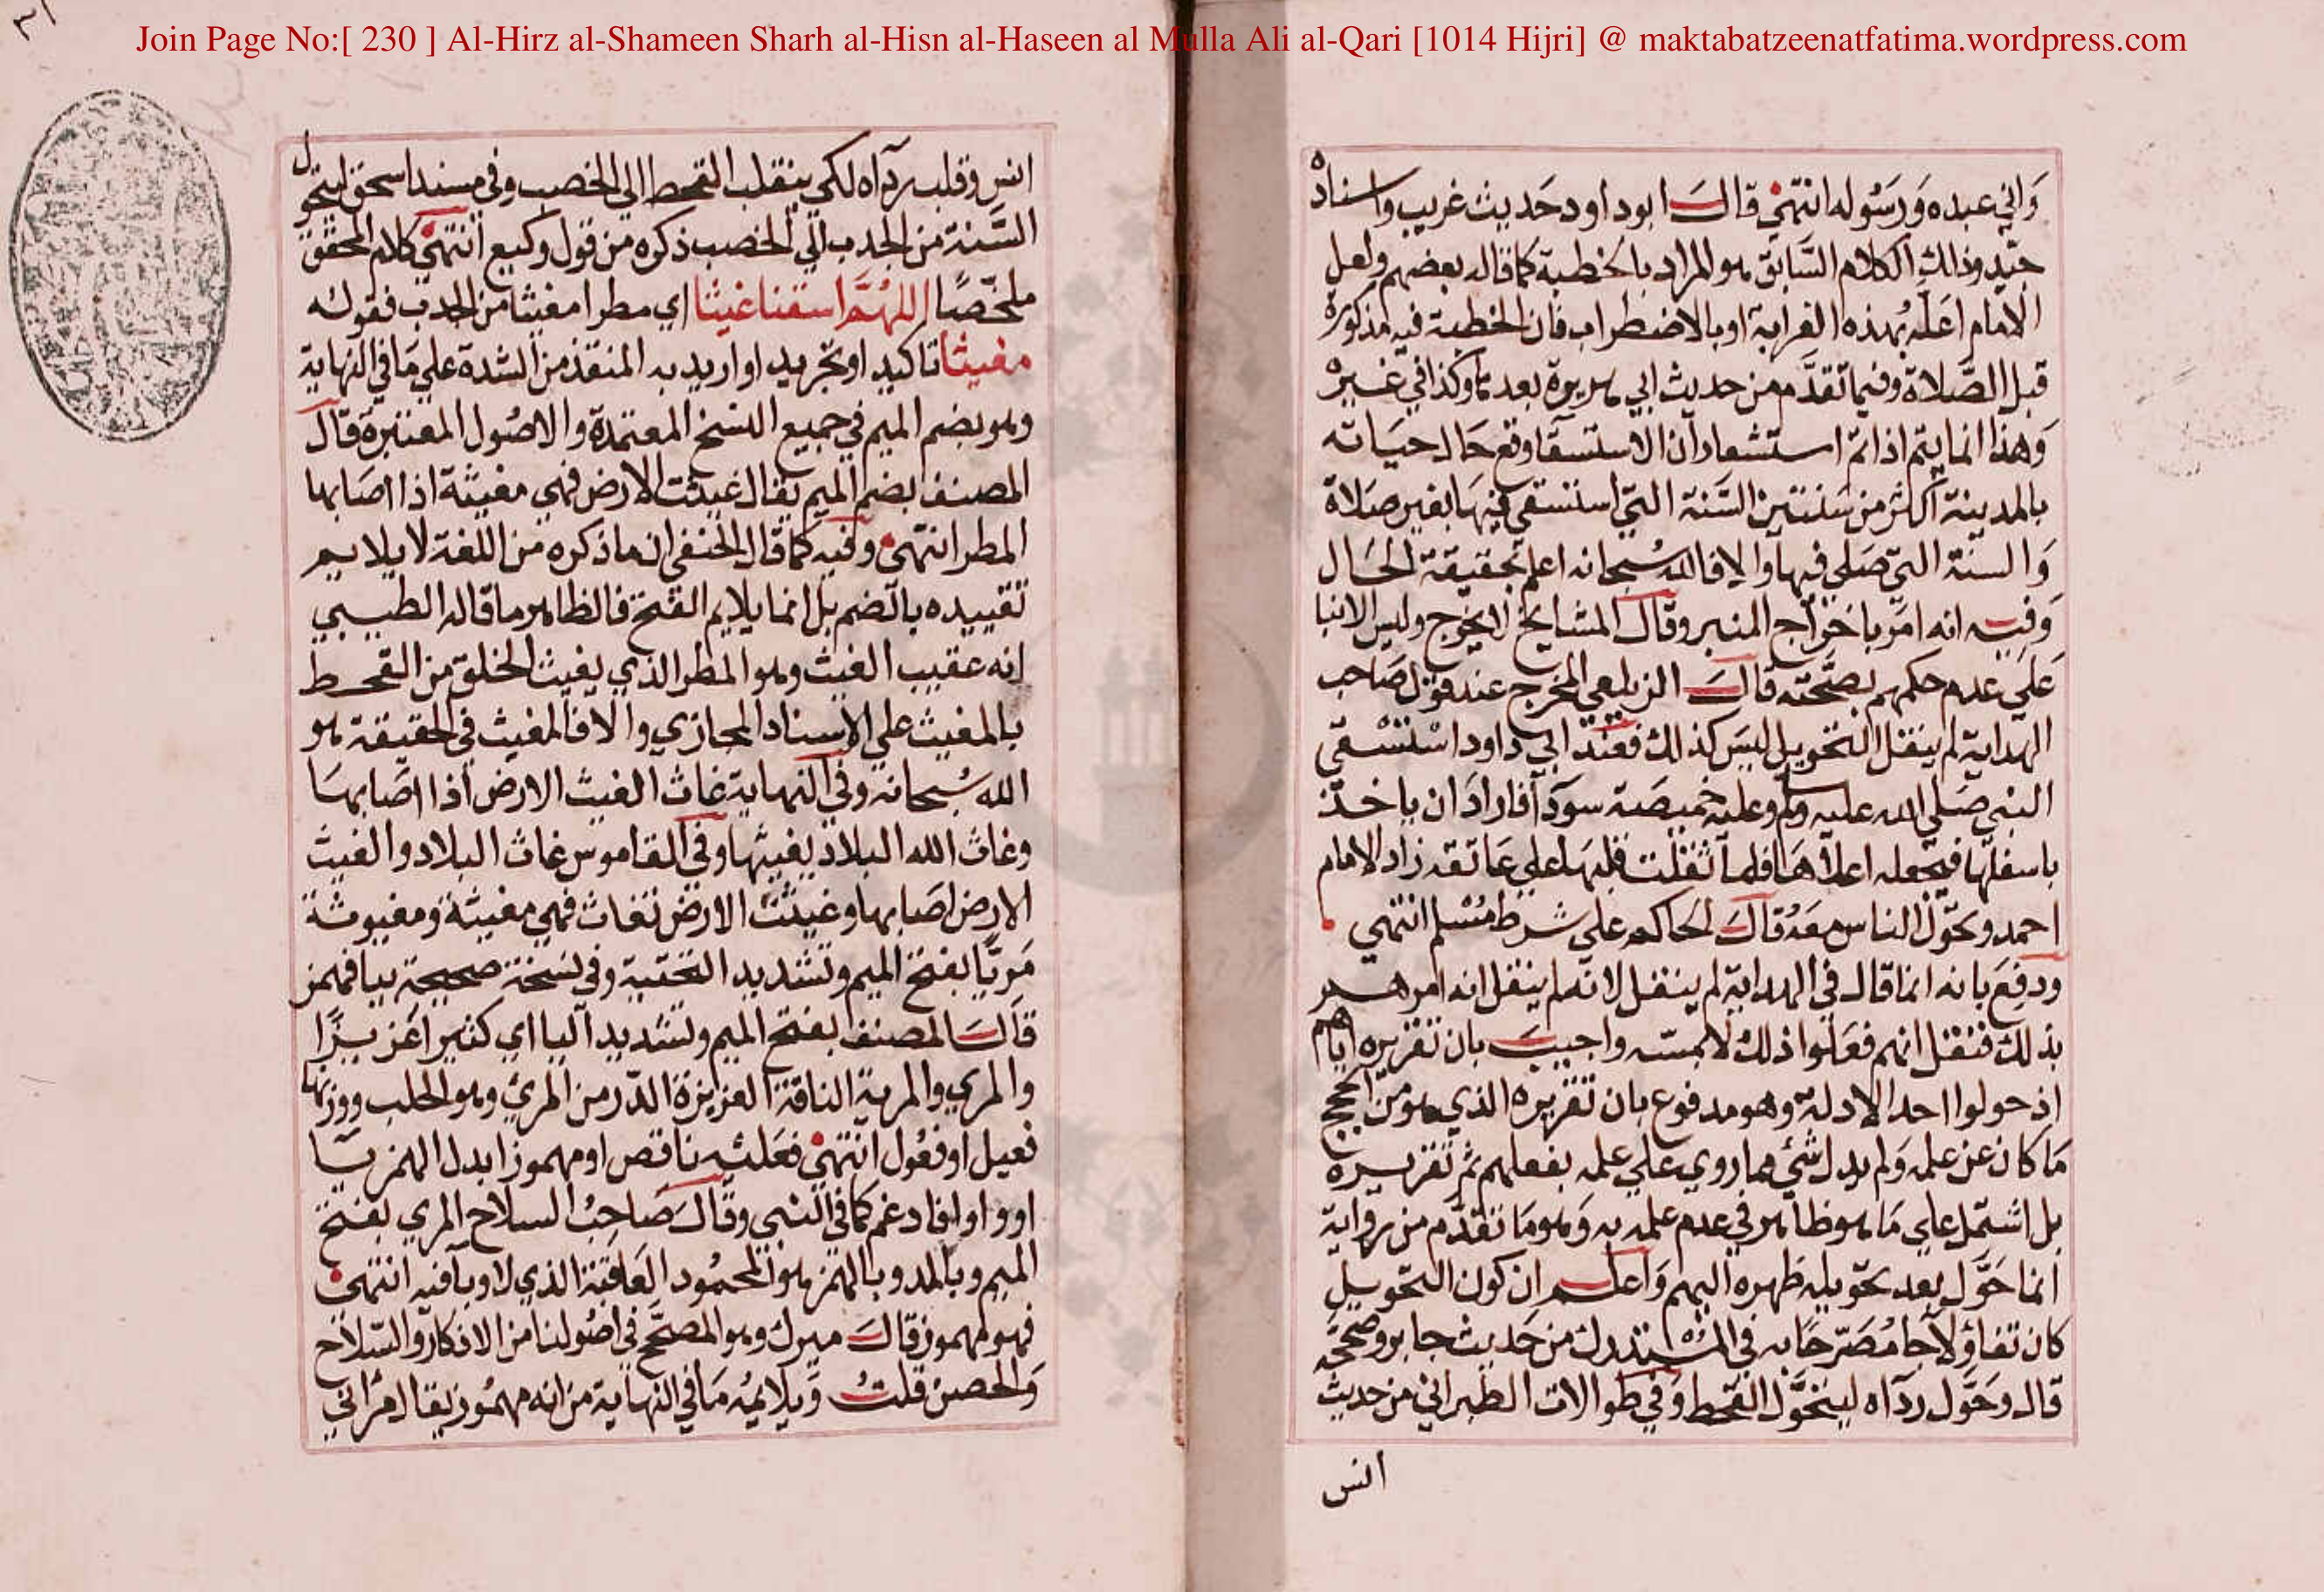 Join Page No:[ 230 ] Al-Hirz al-Shameen Sharh al-Hisn al-Haseen al Mulla Ali al-Qari [1014 Hijri] @ maktabatzeenatfatima.wordpress.com
وَاني عبده وَرَسُوله انتهى قالَ ابو داود حَديث غريب واسناده
جيّد وذلك الكلام السَّابق هو المراد بالخطبة كما قاله بعضهم ولعل
الامام اعَلّه بهذه الغرابة او بالاضطراب فان الخطبة فيه مذكورة
قبل الصَّلاة وفيما تقدَّم من حديث ابي هريرة بعدها وكذا في غيره
وَهذا انما يتم اذا تم استشعار ان الاستسقآ وقع حَال حيَاته
بالمدينة اكثر من سَنتين السَّنة التي استسقى فيهَا بغير صَلاة
وَالسنة التي صَلى فيها والا فالله سُبحانه اعلم بحقيقة الحَال
وَفيه انه امَر باخرَاج المنبر وقال المشايخ لا يخرج وليس الا بنا
عَلى عدم حكمهم بصحّته قالَ الزيلعي المخرج عند قول صَاحب
الهداية لم ينقل التحويل ليسَ كذلك فعند ابي داود استسقى
النبي صَلى الله عليه وسلم وعليه خميصَة سودآ فارادَ ان ياخذ
باسفلها فيجعله اعلاهَا فلما ثقلت قلبهَا على عَاتقه زاد الامام
احمد وتحوّل الناس معَهُ قالَ الحَاكم على شرط مُسْلم انتهي
ودفعَ بانه انما قال في الهداية لم ينقل لانه لم ينقل انه امرهم
بذلك فنقل انهم فعَلوا ذلك لا يمسّه واجيبَ بان تقريره اياهم
اذ حولوا احد الادلة وهو مدفوع بان تقريره الذي هو من الحجج
مَا كان عن علمه وَلم يدل شئ مما روي على علمه بفعلهم ثم تقريره
بل اشتمل على مَا هو ظاهر في عدم علمه به وَهو مَا تقدّم من رواية
انما حَوَّل بعد تحويله ظهره اليهم وَاعلم ان كون التحويل
كان تفاؤلا جا مُصَرّحًا به في المُسْتدرك من حَديث جابر وصححَه
قال وَحَوَّل ردآه ليتحَوَّل القحط وَفي طوالات الطبراني من حديث
انس
انس وقلب ردآه لكي ينقلب القحط الي الخصب وفي مسند اسحق لتحول
السَّنة من الجدب الي الخصب ذكره من قول وكيع انتهى كلام المحقق
ملخّصًا اللهُمَّ اسقنا غيثا اي مطرا مغيثا من الجدب فقوله
مغيثا تاكيد او تجريد او اريد به المنقذ من الشدة على مَا في النهاية
وهو بضم الميم في جميع النسخ المعتمدة والاصُول المعتبرة قَال
المصنف بضم الميم يقال غيثت الارض فهي مغيثة اذا اصَابها
المطر انتهى وفيه كما قال الحنفي ان ما ذكره من اللغة لا يلايم
تقييده بالضم بل انما يلايم الفتح فالظاهر ما قاله الطيبي
انه عقيب الغيث وهو المطر الذي يغيث الخلق من القحط
بالمغيث على الاسناد المجازي والا فالمغيث في الحقيقة هو
الله سُبحانه وفي النهاية غاث الغيث الارض اذا اصَابهَا
وغاث الله البلاد يغيثها وفي القاموس غاث البلاد والغيث
الارض اصَابها وغيثت الارض تغاث فهي مغيثة ومغيوثة
مَريًّا بفتح الميم وتشديد التحتية وفي نسخة صحيحة بيا فهمز
قالَ المصنف بفتح الميم وتشديد اليا اي كثيرا غزيرًا
والمري والمرية الناقة الغزيزة الدّر من المرئ وهو الحلب ووزنها
فعيل او فعُول انتهى فعَلى نه ناقص او مهموز ابدل الهمز يَا
او واو وادغم كما في النبي وقالَ صَاحبُ السلاح المري بفتح
الميم وبالمد وبالهمز هو المحمُود العَاقبة الذي لا وبآ فيه انتهى
فهو مهموز قالَ ميرك وهو المصحَّح في اصُولنا من الاذكار والسّلاح
وَالحصن قلتُ وَيلايمُه مَا في النهاية من انه مهمُوز يقال مراني